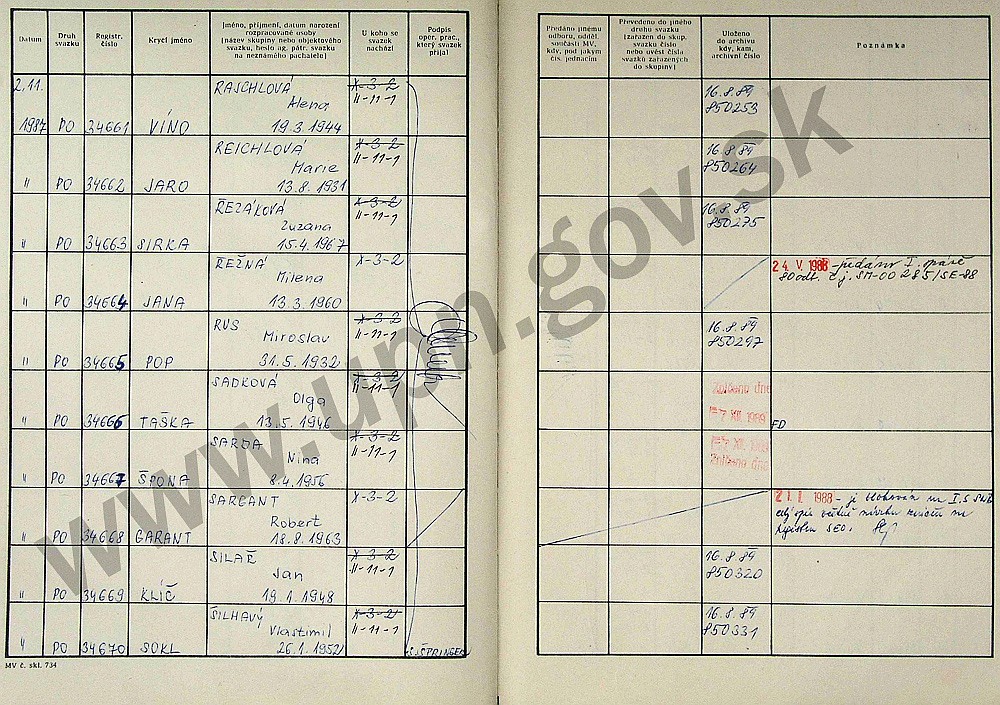 Datum
Druh svazku
Registr. číslo
Krycí jméno
Jméno, příjmení, datum narození
rozpracované osoby
(název skupiny nebo objektového
svazku, heslo ag. pátr. svazku
na neznámého pachatele)
U koho se svazek nachází
Podpis oper. prac., který svazek přijal
Předáno jinému
odboru, odděl.
součásti MV,
kdy, pod jakým
čís. jednacím
Převedeno do jiného
druhu svazku
(zařazen do skup.
svazku číslo
nebo uvést čísla
svazků zařazených
do skupiny)
Uloženo
do archivu
kdy, kam,
archivní číslo
Poznámka
2.11. RAJCHLOVÁ X-3-2 16.8.89
Alena II-11-1 850253
1987 PO 34661 VÍNO 19.3.1944
REICHLOVÁ X-3-2 16.8.89
Marie II-11-1 850264
" PO 34662 JARO 13.8.1931
ŘEZÁKOVÁ X-3-2 16.8.89
Zuzana II-11-1 850275
" PO 34663 SIRKA 15.4.1967
ŘEŽNÁ X-3-2 24. V. 1988
Milena č.j. SM-00285/SE-88
" PO 34664 JANA 13.3.1960
RUS X-3-2 16.8.89
Miroslav II-11-1 850297
" PO 34665 POP 31.5.1932
SADKOVÁ X-3-2 Zničeno dne
Olga II-11-1 -7. XII. 1989
" PO 34666 TAŠKA 13.5.1946 FD
SARDA X-3-2 -7. XII. 1989
Nina II-11-1 Zničeno dne
" PO 34667 ŠPONA 8.4.1956
SARGANT X-3-2
Robert
" PO 34668 GARANT 18.8.1963
SILAŘ X-3-2 16.8.89
Jan II-11-1 850320
" PO 34669 KLÍČ 19.1.1948
ŠILHAVÝ X-3-2 16.8.89
Vlastimil II-11-1 850331
" PO 34670 SOKL 26.1.1952 ŠPRINGER
MV č. skl. 734
www.upn.gov.sk